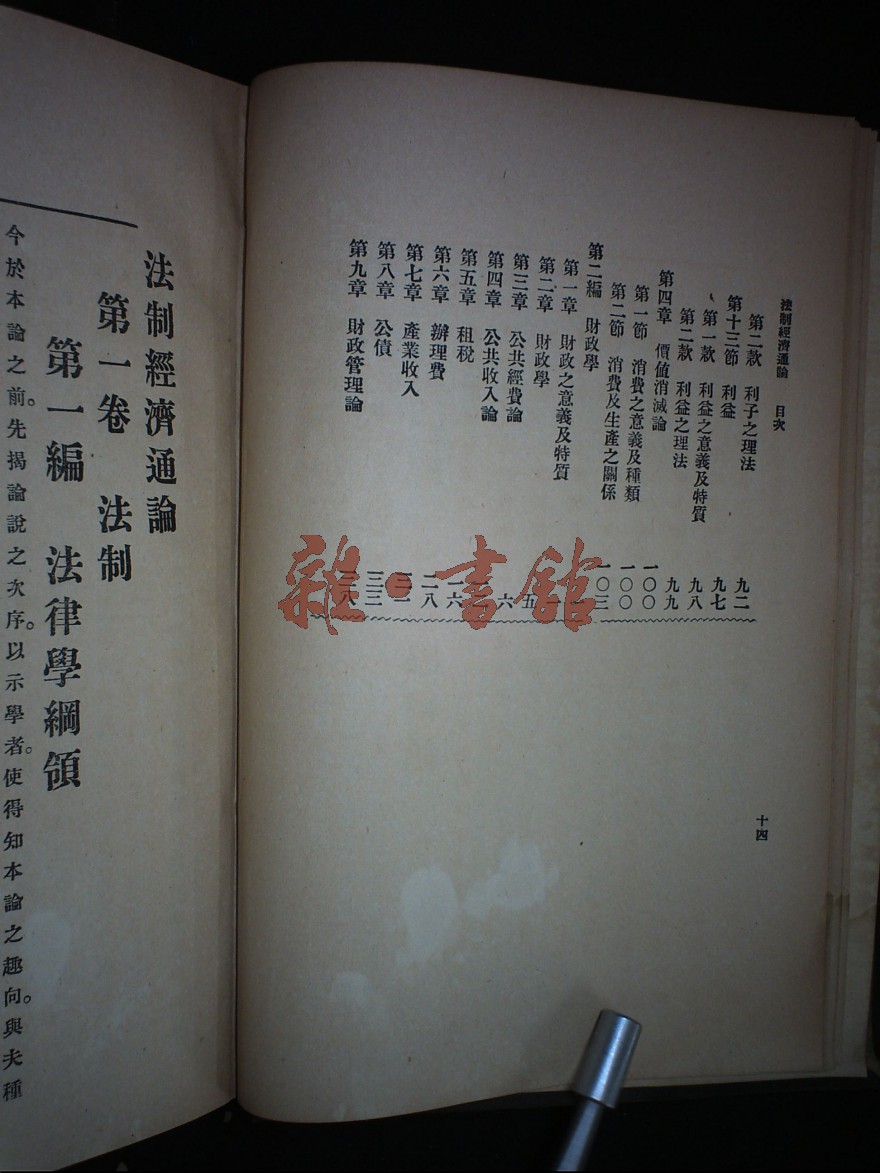 法制經濟通論 目次
第二款 利子之理法 九二
第十三節 利益 九七
第一款 利益之意義及特質 九八
第二款 利益之理法 九九
第四章 價値消滅論 一〇〇
第一節 消費之意義及種類 一〇〇
第二節 消費及生產之關係 一〇三
第二編 財政學
第一章 財政之意義及特質
第二章 財政學 五
第三章 公共經費論 六
第四章 公共收入論
第五章 租稅 一六
第六章 辦理費 二八
第七章 產業收入
第八章 公債 三三
第九章 財政管理論
十四
法制經濟通論
第一卷 法制
第一編 法律學綱領
今於本論之前。先揭論說之次序。以示學者。使得知本論之趣向。與夫種
雜·書館